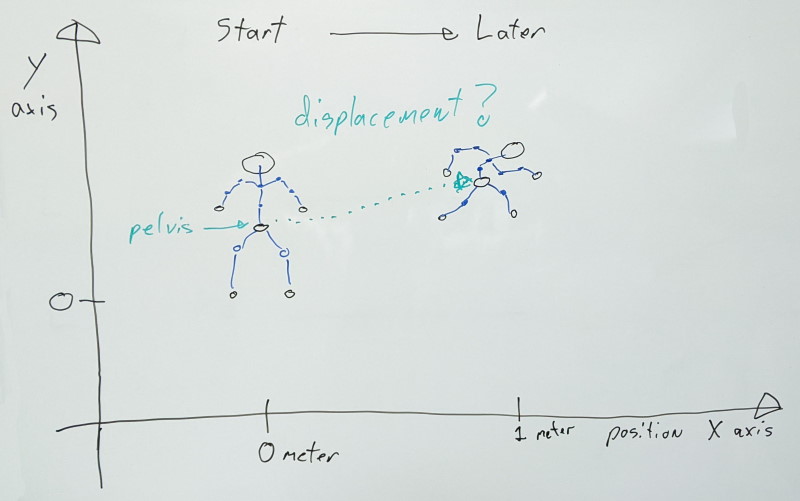 Start → Later
Y
axis
displacement?
pelvis →
0
0 meter
1 meter
position X axis